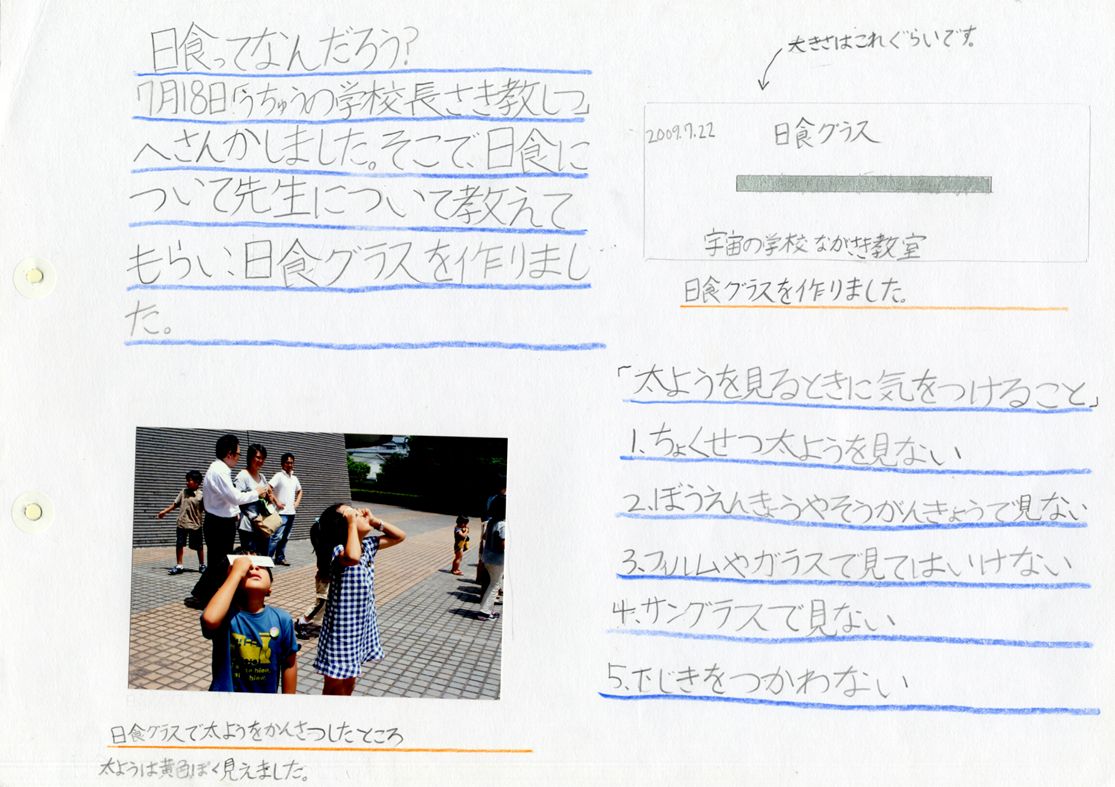 日食ってなんだろう?
7月18日「うちゅうの学校長さき教しつ」
へさんかしました。そこで、日食に
ついて先生について教えて
もらい、日食グラスを作りまし
た。
日食グラスで太ようをかんさつしたところ
太ようは黄色ぽく見えました。
大きさはこれぐらいです。
2009.7.22 日食グラス
宇宙の学校 ながさき教室
日食グラスを作りました。
「太ようを見るときに気をつけること」
1.ちょくせつ太ようを見ない
2.ぼうえんきょうやそうがんきょうで見ない
3.フィルムやガラスで見てはいけない
4.サングラスで見ない
5.下じきをつかわない